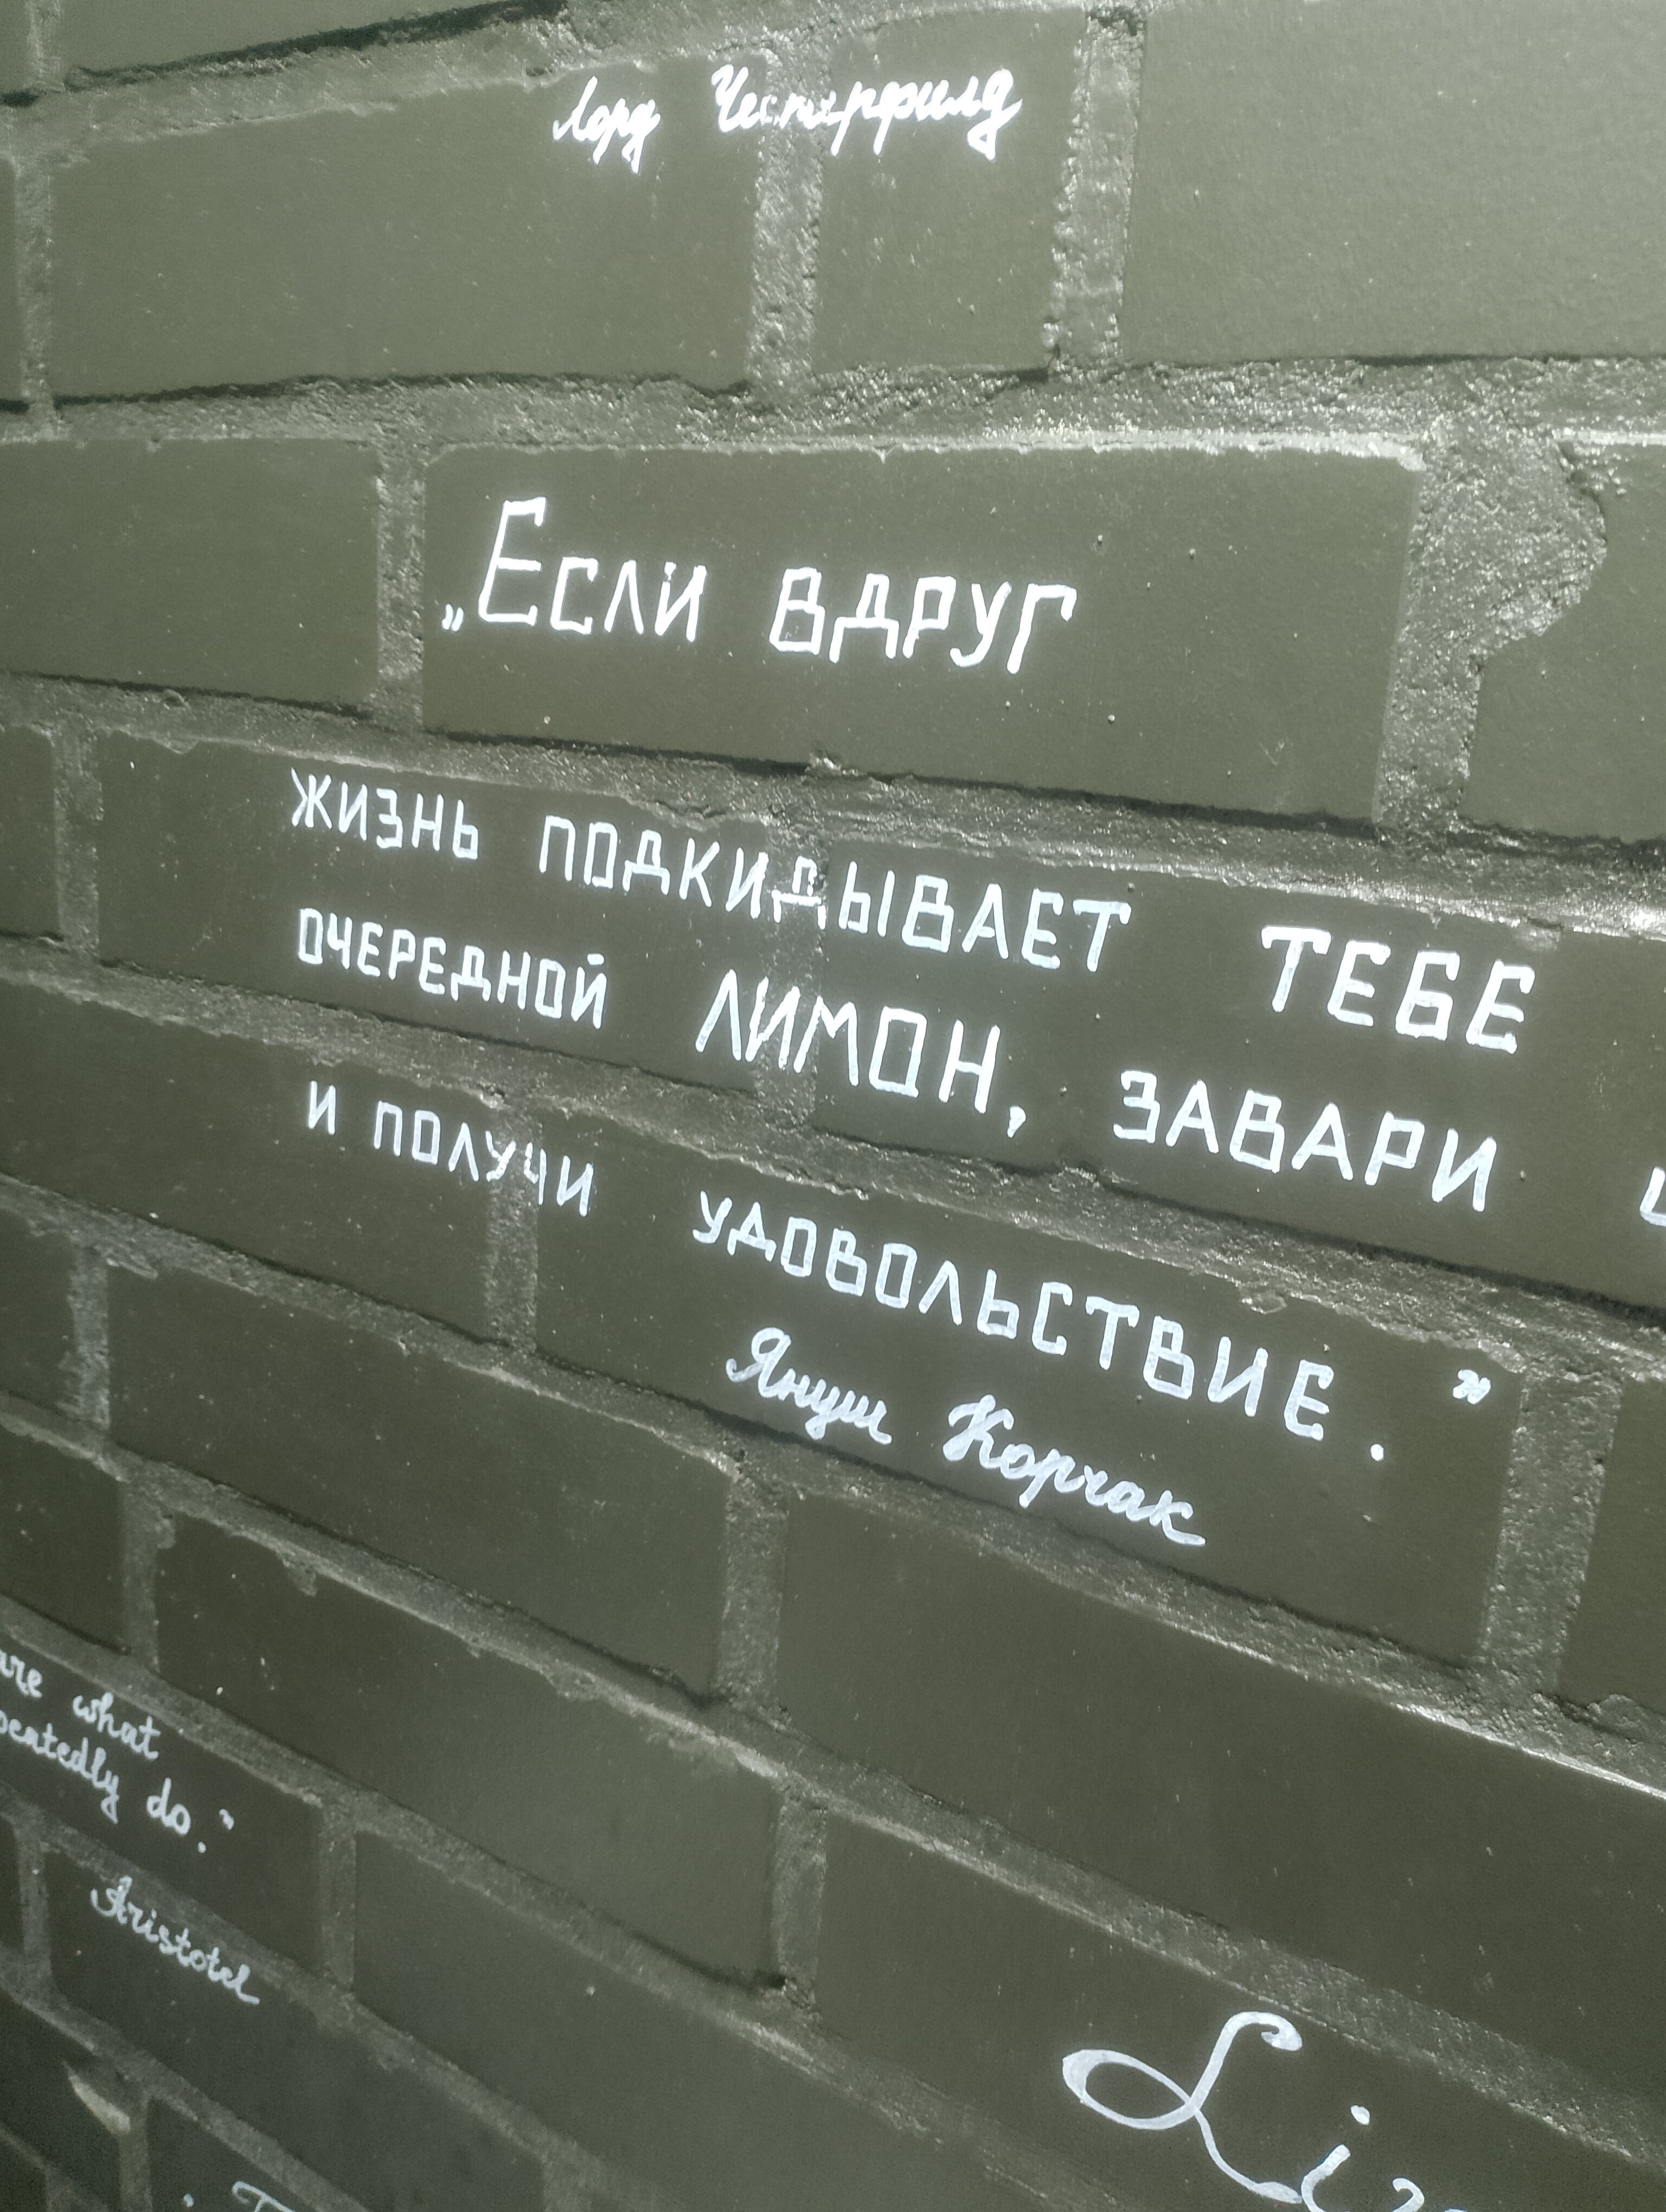 Лорд Честерфилд
„Если вдруг
жизнь подкидывает тебе
очередной лимон, завари
и получи удовольствие."
Януш Корчак
are what
do."
Aristotel